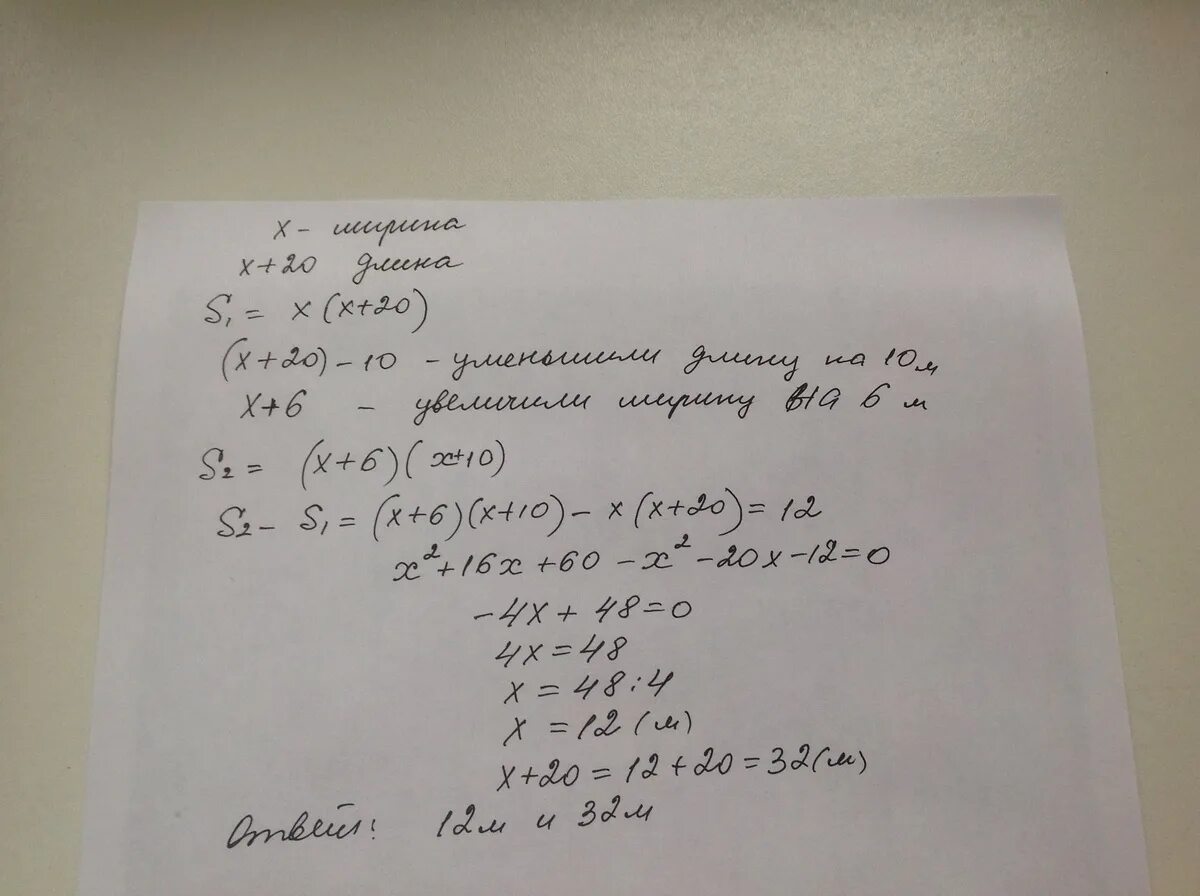 x - ширина
x+20 длина
S₁ = x (x+20)
(x+20) - 10 - уменьшили длину на 10 м
x+6 - увеличили ширину на 6 м
S₂ = (x+6)(x+10)
S₂ - S₁ = (x+6)(x+10) - x (x+20) = 12
x² + 16x + 60 - x² - 20x - 12 = 0
-4x + 48 = 0
4x = 48
x = 48 : 4
x = 12 (м)
x+20 = 12+20 = 32 (м)
Ответ: 12м и 32м